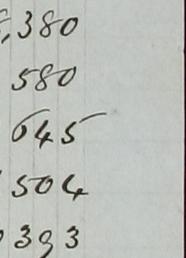 ,380
580
645
504
393